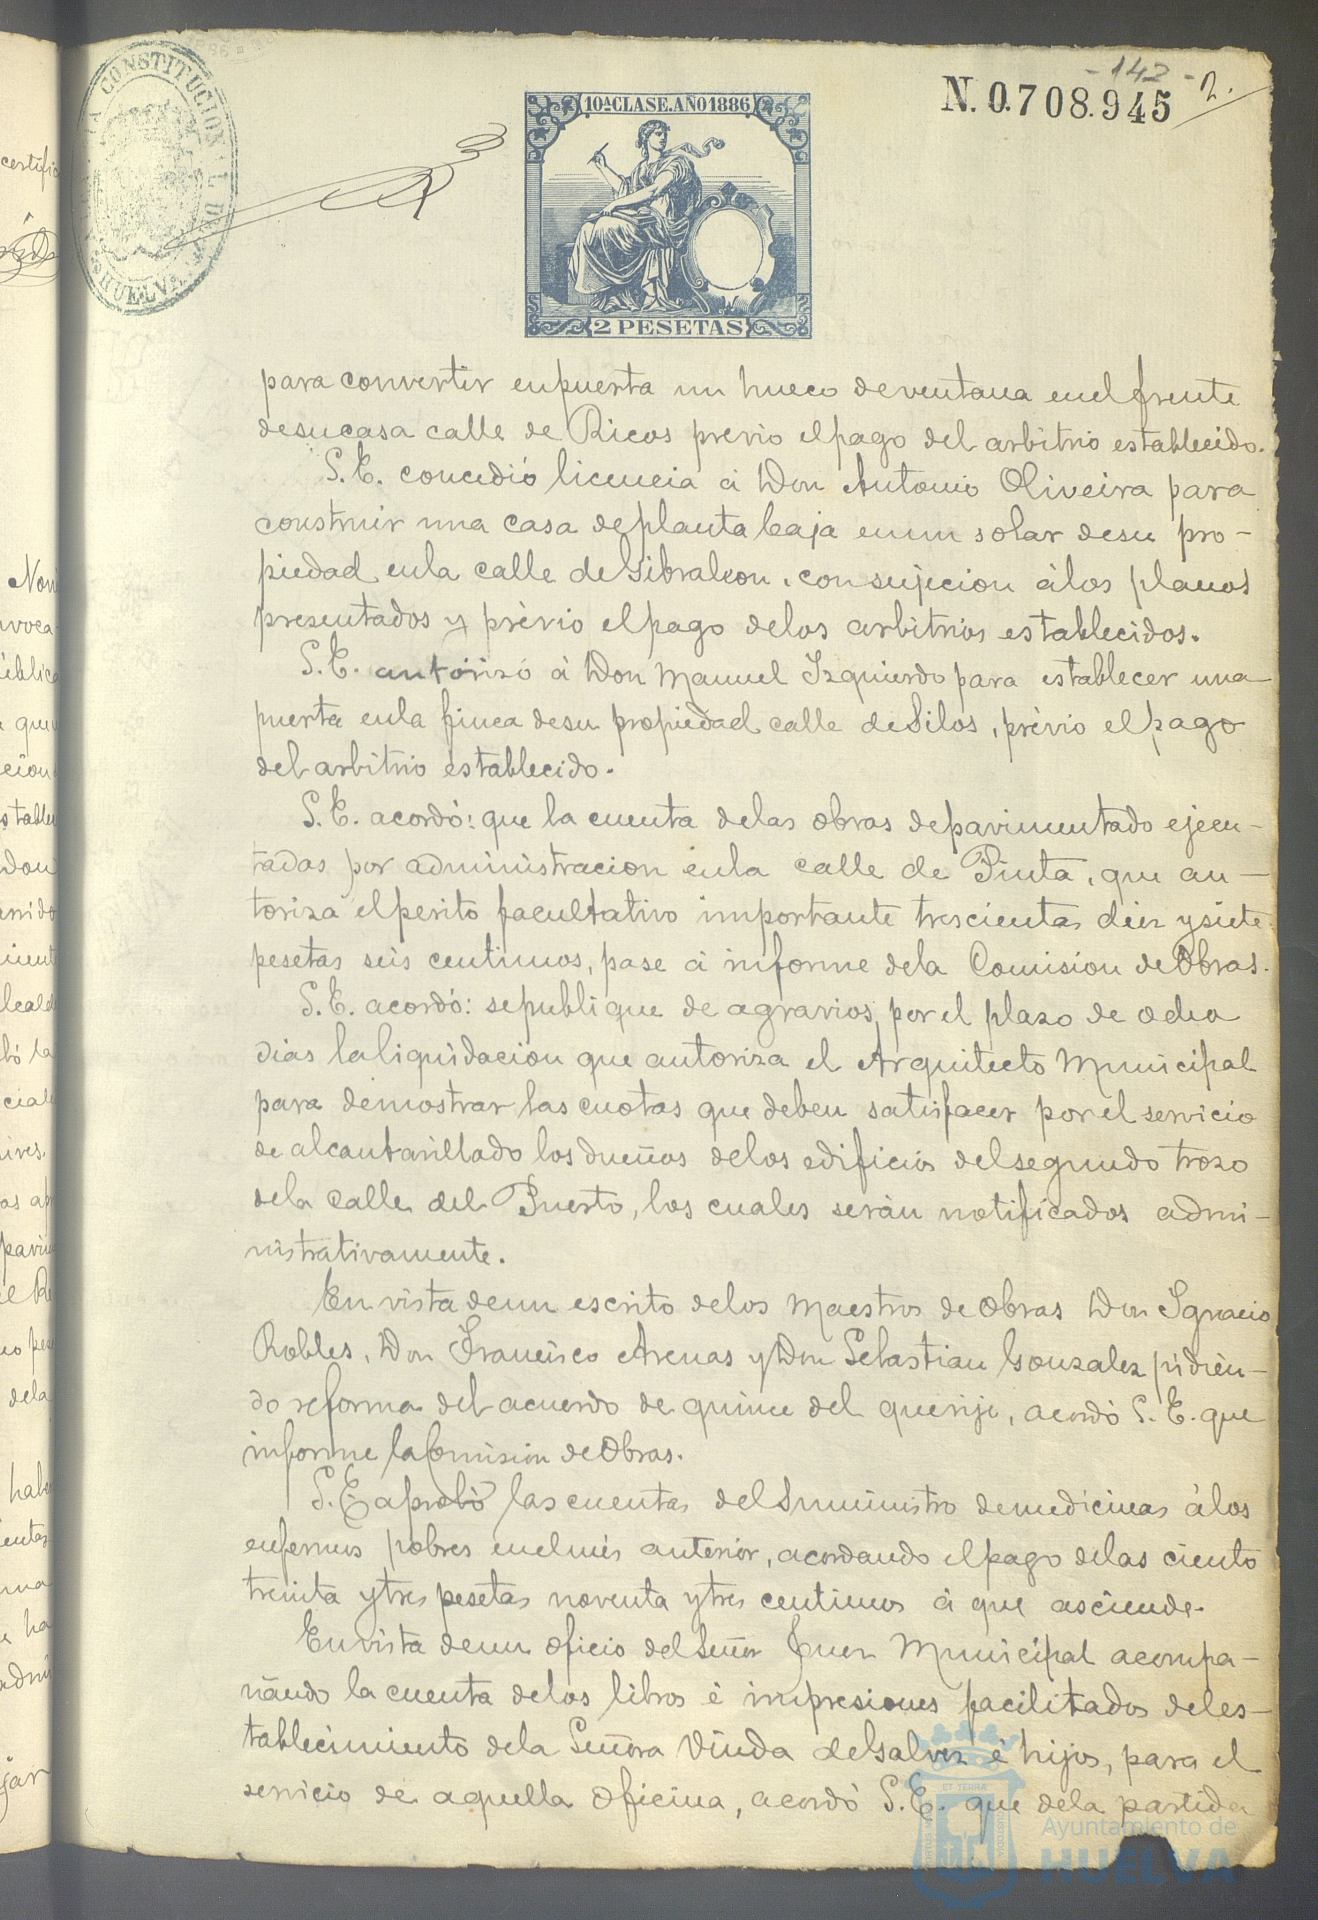 -142-
N. 0.708.945
2.
10ª CLASE. AÑO 1886
2 PESETAS
CONSTITUCIONAL DE
HUELVA
para convertir en puerta un hueco de ventana en el frente
de su casa calle de Ricos previo el pago del arbitrio establecido.
S.E. concedió licencia á Don Antonio Oliveira para
construir una casa de planta baja en un solar de su pro-
piedad en la calle de Gibraleon, con sujecion á los planos
presentados y prévio el pago de los arbitrios establecidos.
S.E. autorizó á Don Manuel Izquierdo para establecer una
puerta en la finca de su propiedad calle de Silos, prévio el pago
del arbitrio establecido.
S.E. acordó: que la cuenta de las obras de pavimentado ejecu-
tadas por administracion en la calle de Pinta, que au-
toriza el perito facultativo importante trescientas diez y siete
pesetas seis centimos, pase á informe de la Comision de Obras.
S.E. acordó: se publique de agravios, por el plazo de ocho
dias la liquidacion que autoriza el Arquitecto Municipal
para demostrar las cuotas que deben satisfacer por el servicio
de alcantarillado los dueños de los edificios del segundo trozo
de la calle del Puerto, los cuales serán notificados admi-
nistrativamente.
En vista de un escrito de los Maestros de Obras Don Ignacio
Robles, Don Francisco Arenas y Don Sebastian Gonzalez pidien-
do reforma del acuerdo de quince del que rije, acordó S.E. que
informe la Comision de Obras.
S.E. aprobó las cuentas del suministro de medicinas á los
enfermos pobres en el més anterior, acordando el pago de las ciento
treinta y tres pesetas noventa y tres centimos á que asciende.
En vista de un oficio del Señor Juez Municipal acompa-
ñando la cuenta de los libros é impresiones facilitados del es-
tablecimiento de la Señora Viuda de Galvez é hijos, para el
servicio de aquella oficina, acordó S.E. que de la partida
ET TERRA
Ayuntamiento de
HUELVA